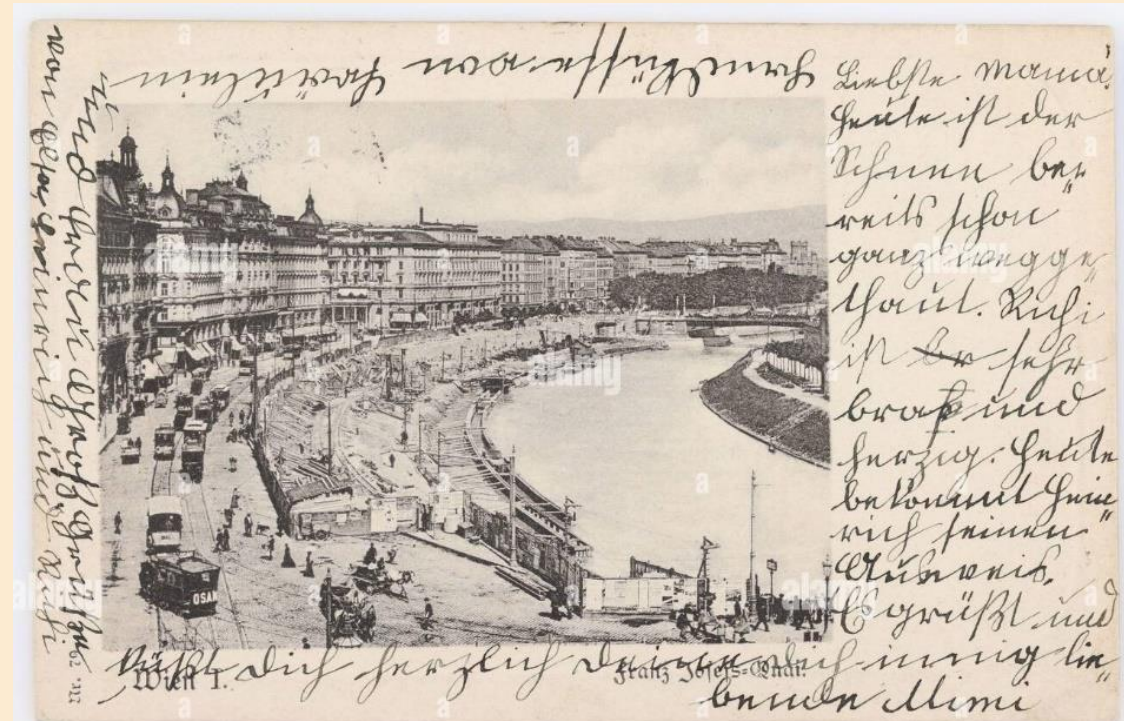 Liebste Mama!
Heute ist der
Schnee be„
reits schon
ganz wegge„
thaut. Richi
ist sehr
brav und
herzig. Heute
bekommt Hein„
rich seinen
Ausweis.
Es grüßt und
küßt Dich herzlich Deine Dich innig lie„
bende Mimi
Handküsse von Fräulein
und
von
Wien I.
Franz Josefs-Quai.
OSAN
alamy
alamy
alamy
alamy
a
a
a
a